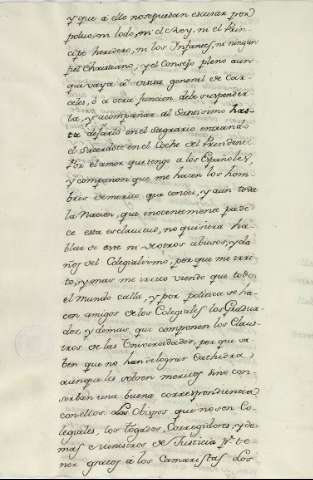 y que a ello no se puedan escusar por
polvo, ni lodo, ni el Rey, ni el Prin
cipe heredero, ni los Infantes, ni ningun
fiel Christiano, y el Consejo pleno aun
que vaya a visita general de Car
celes, ò a otra funcion debe suspender
la, y acompañar al Santisimo has
ta dejarlo en el Sagrario entrando
el Sacerdote en el Coche del Presidente
Por el amor que tengo a los Españoles,
y compasion que me hacen los hom
bres de merito que conoci, y aun toda
la Nacion, que inocentemente pade
ce esta esclavitud, no quisiera ha
blar de este ni de otros abusos, y da
ños del Colegialismo, porque me irri
to, y mas me irrito viendo que todo
el mundo calla, y por politica se ha
cen amigos de los Colegiales los Gradua
dos, y demas que componen los Claus
tros de las Universidades, porque sa
ben que no han de lograr Cathedra
aunque les sobren meritos sino con
serban una buena correspondencia
con ellos. Los Obispos que no son Co
legiales, los Togados, Corregidores, y de
mas Ministros de Justicia p.ª te
ner gratos a los Camaristas los